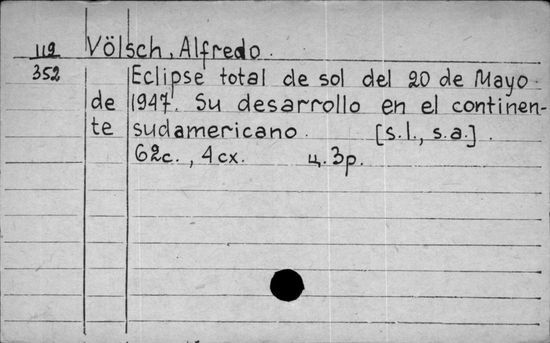 119 Völsch, Alfredo.
352 Eclipse total de sol del 20 de Mayo
de 1947. Su desarrollo en el continen-
te sudamericano. [s.l., s.a.].
62с., 4 сх. ц. 3р.